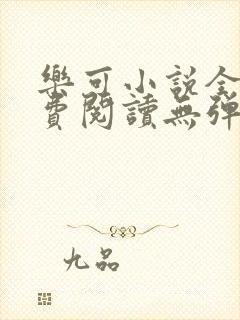 樂可小說全
費閱讀無彈
九品